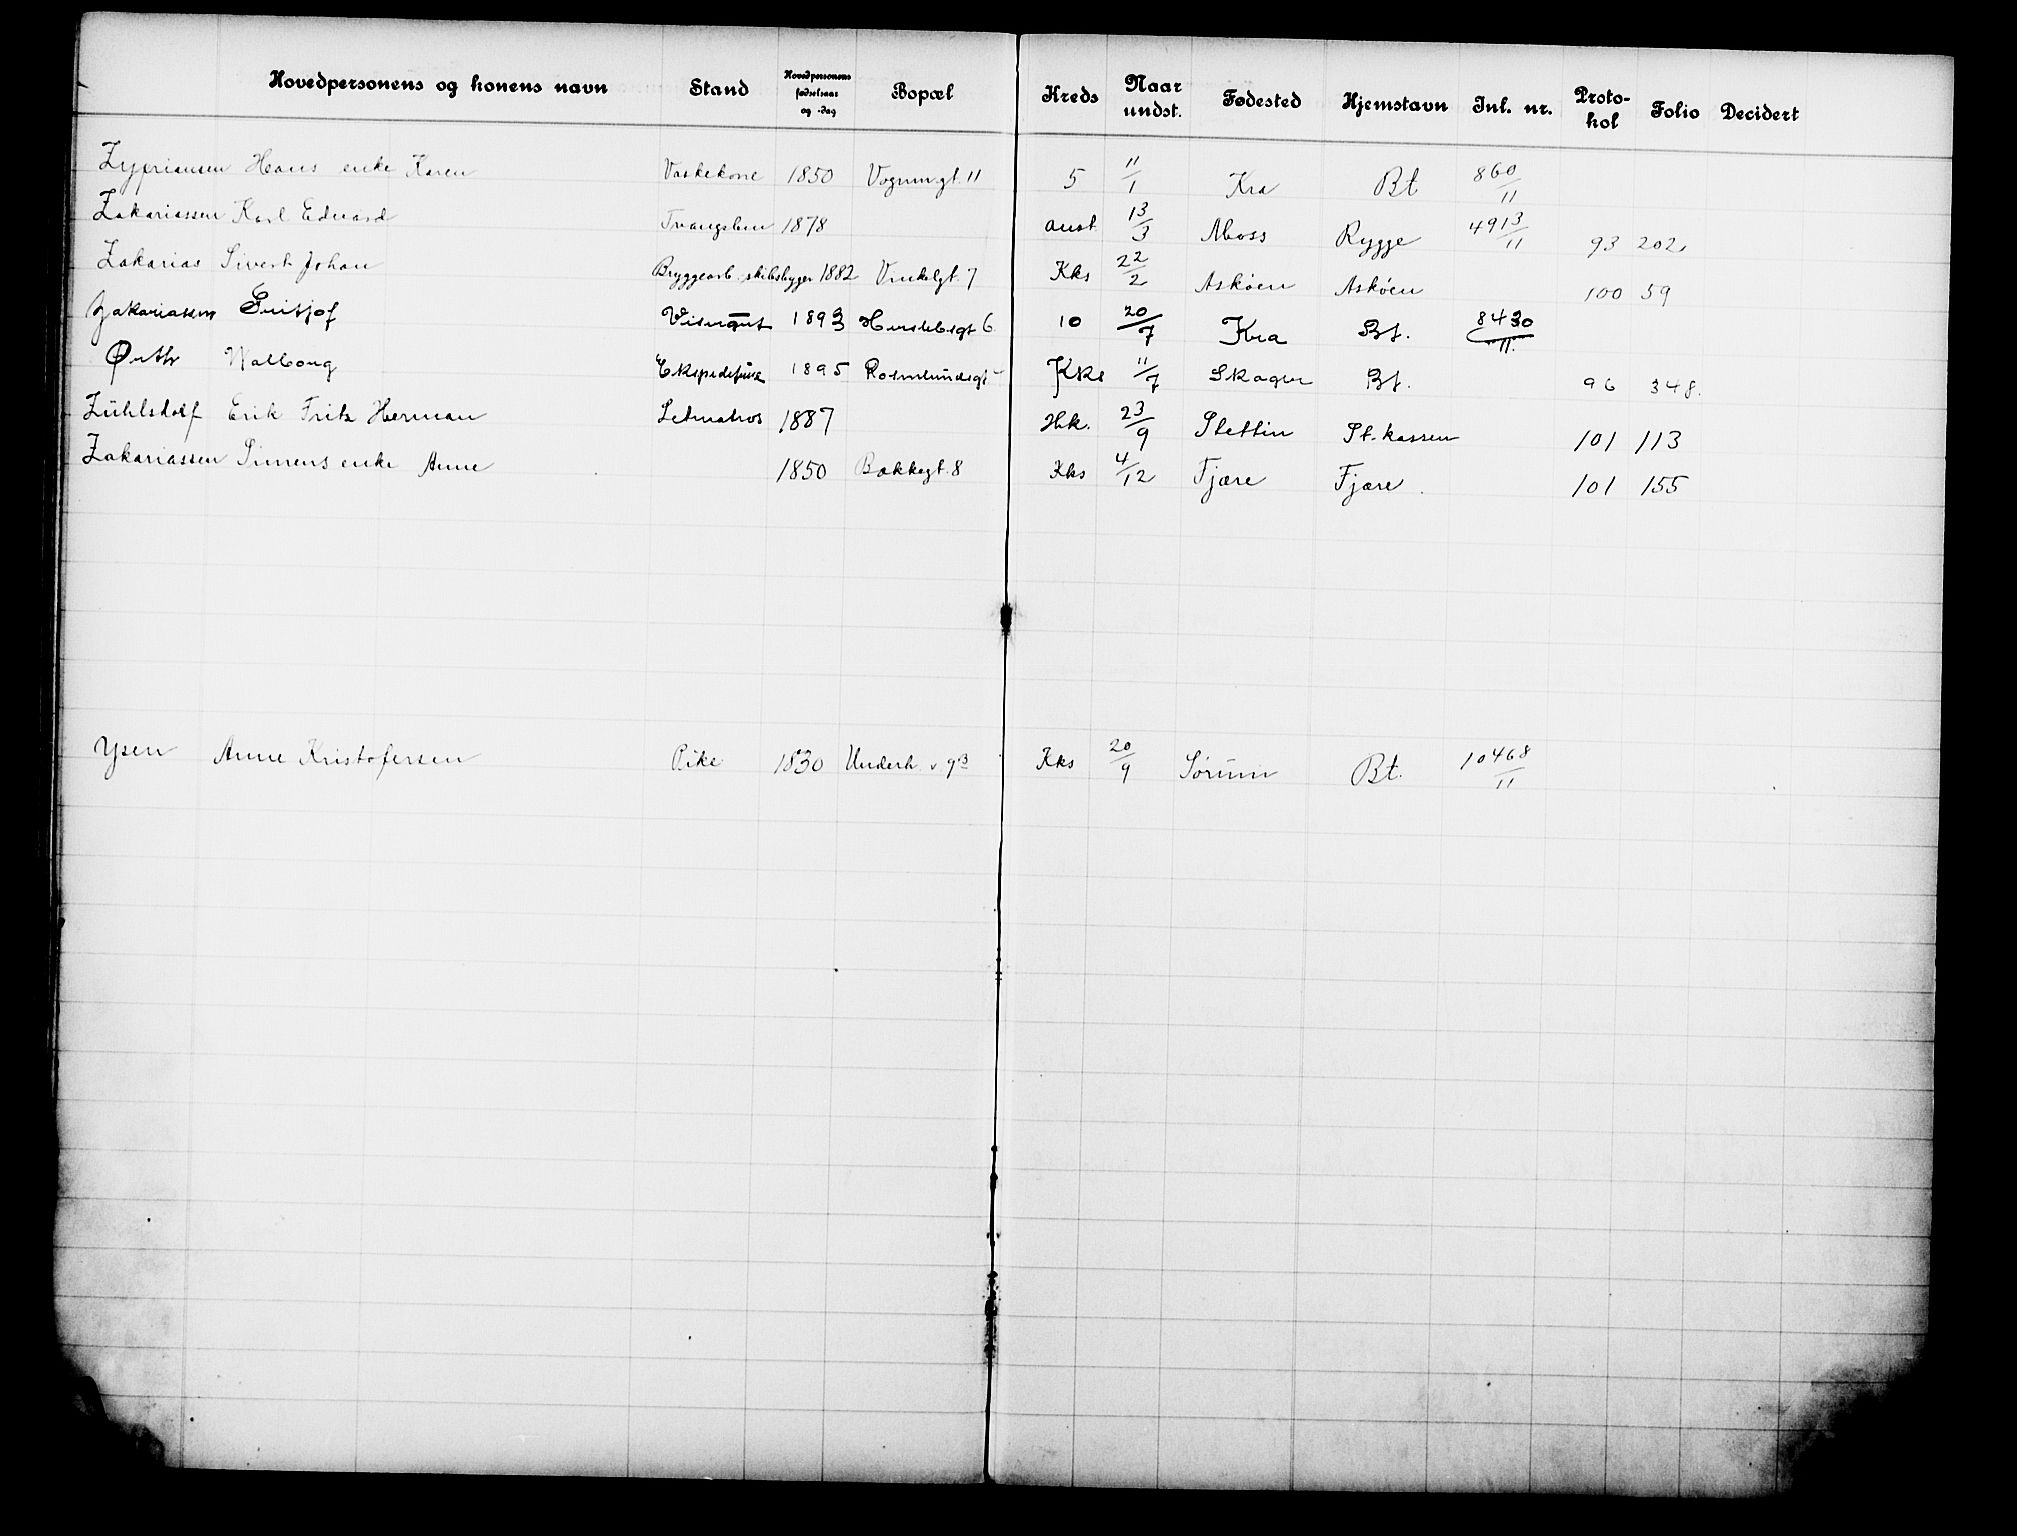 Hovedpersonens og konens navn Stand Hovedpersonens fødselsaar og -dag Bopæl Kreds Naar undst. Fødested Hjemstavn Inl. nr. Protokol Folio Decidert
Zypriansen Hans enke Karen Vaskekone 1850 Vognm.gt. 11 5 11/1 Kra Bt 860/11
Zakariassen Karl Edvard Tvangslem 1878 anst 13/3 Moss Rygge 4913/11 93 202
Zakarias Sivert Johan Bryggearb. skibsbygger 1882 Vinkelgt. 7 Kks 22/2 Askøen Askøen 100 59
Zakariassen Fritjof 1893 6 10 20/7 Kra Bt. 8430/11
Walborg 1895 Kks 11/7 Bt. 96 348.
Zühlsdolf Erik Fritz Herman Letmatros 1887 Hk. 23/9 Stettin St.kassen 101 113
Zakariassen Simens enke Anne 1850 Bakkegt. 8 Kks 4/12 Fjære Fjære 101 155
Ysen Anne Kristofersen Pike 1830 Underh. v 93 Kks 20/9 Sørum Bt. 10468/11